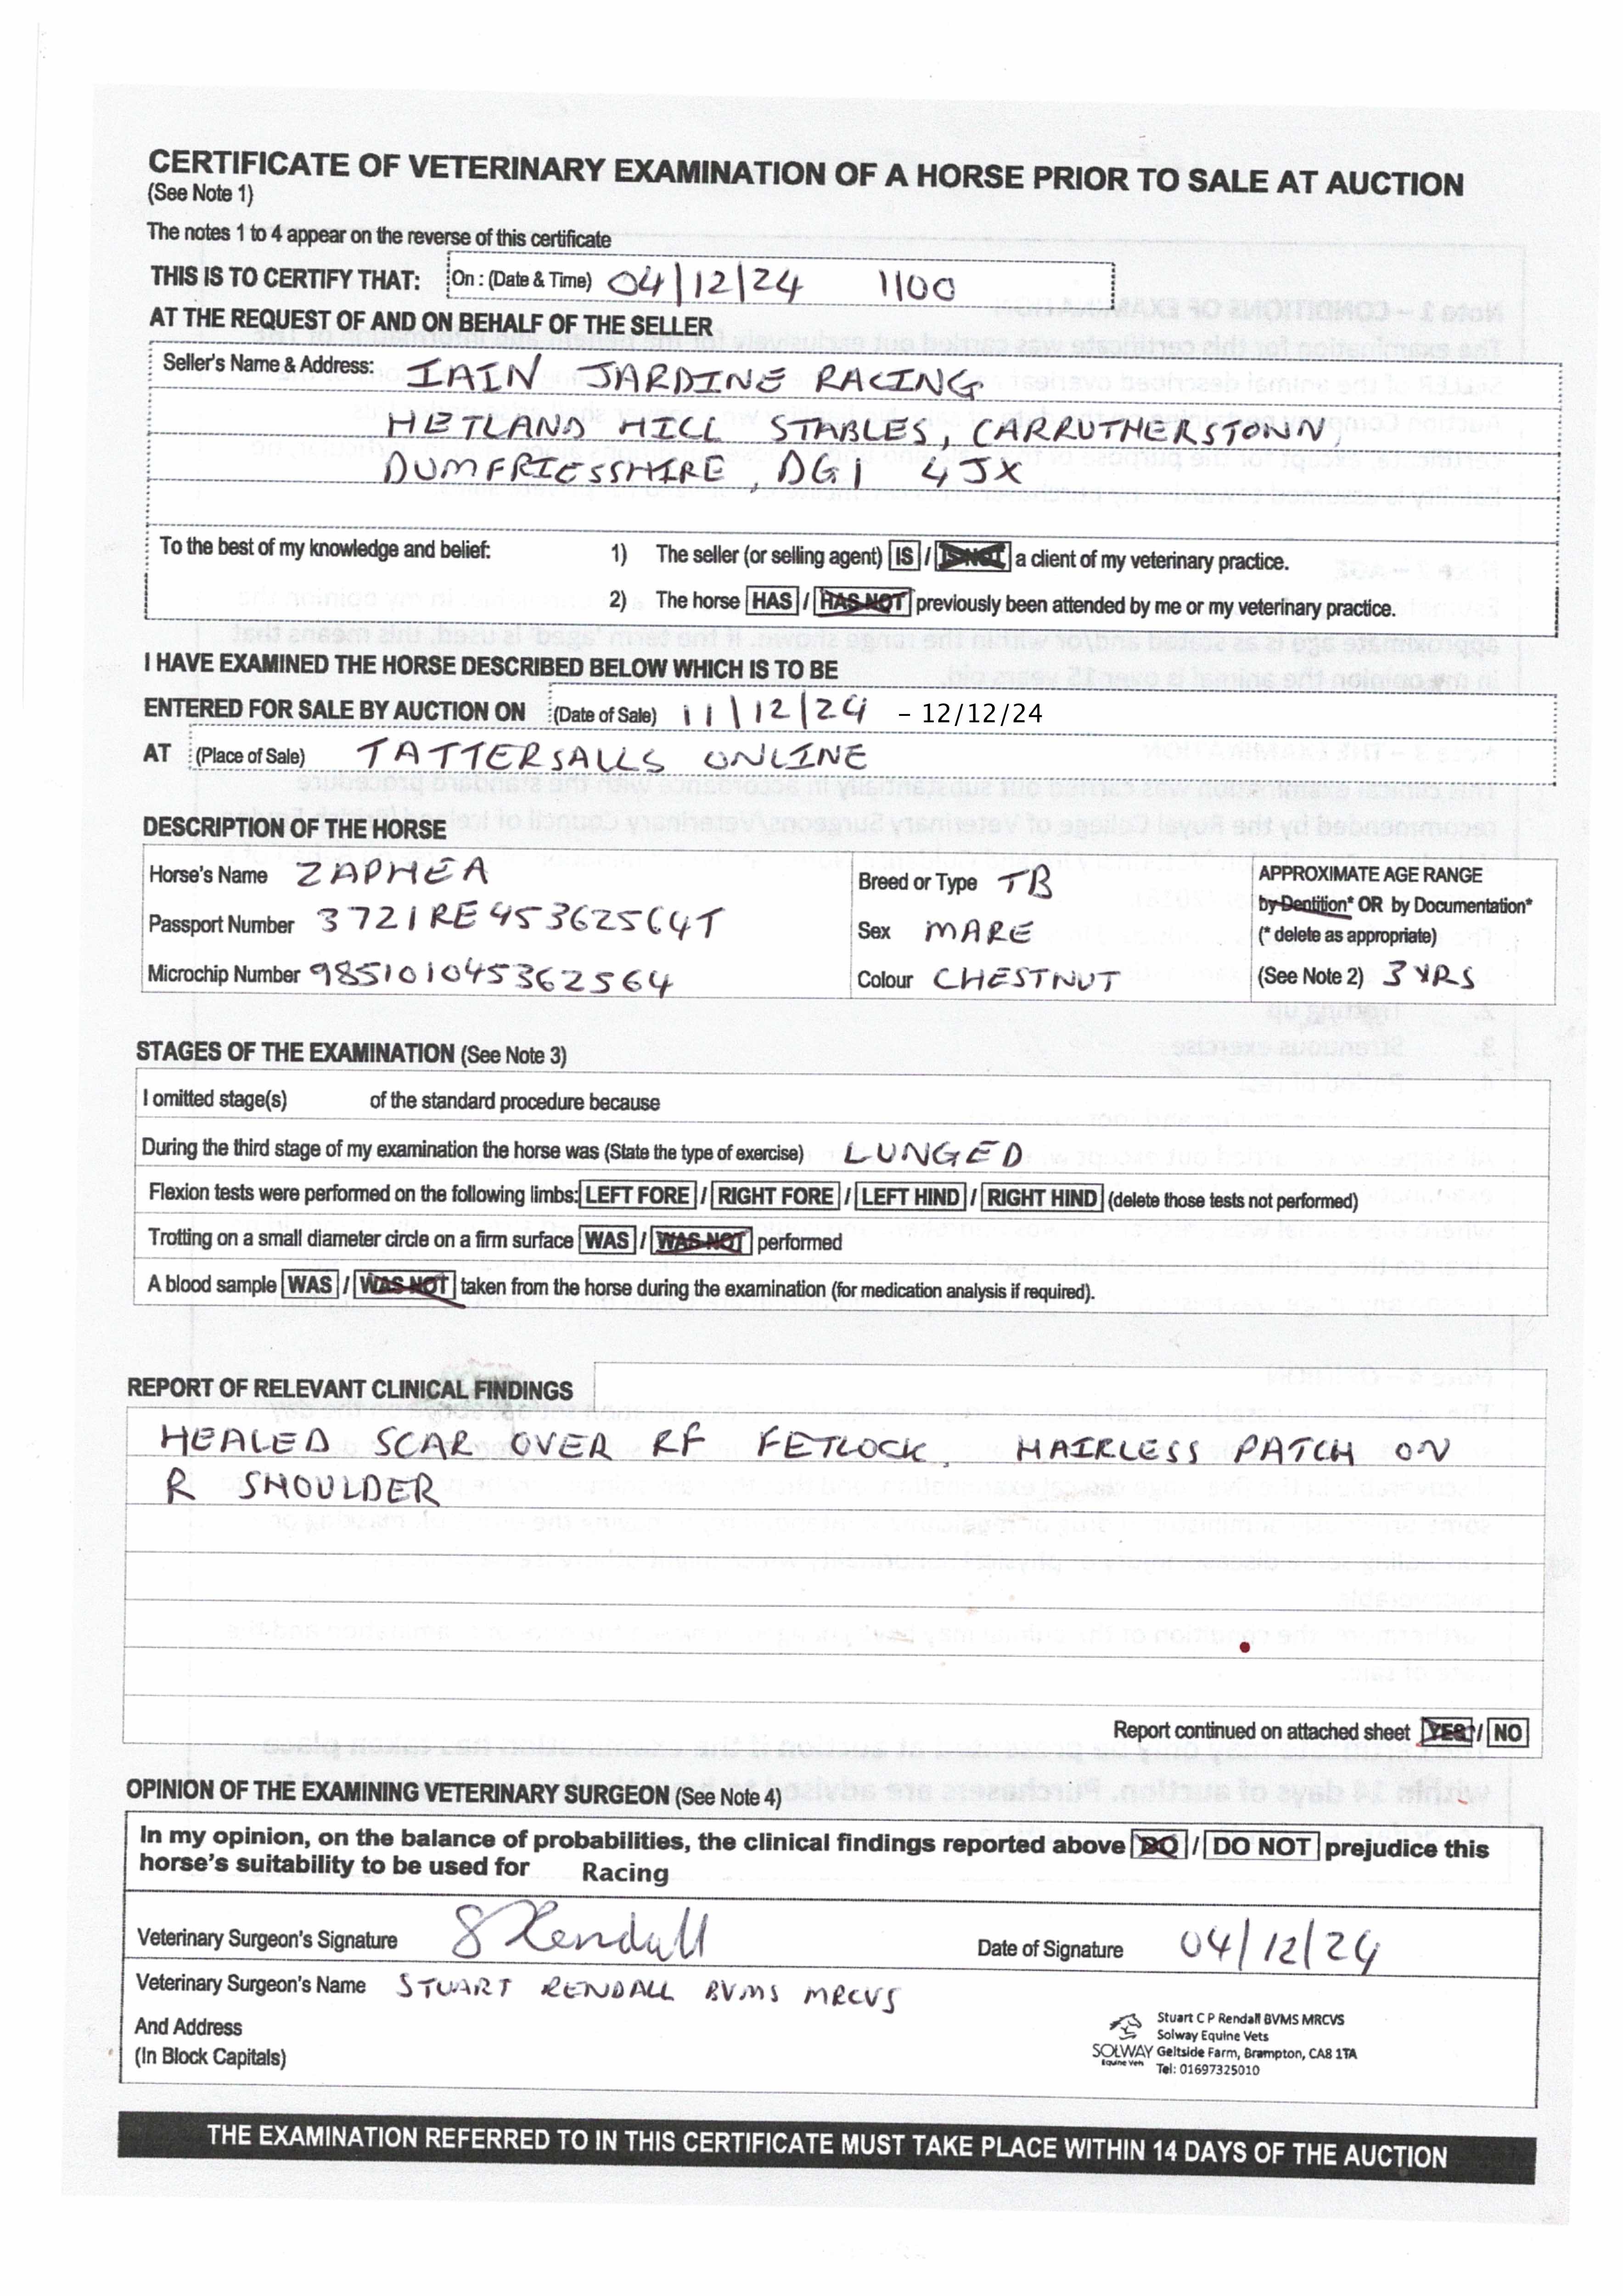 CERTIFICATE OF VETERINARY EXAMINATION OF A HORSE PRIOR TO SALE AT AUCTION
(See Note 1)
The notes 1 to 4 appear on the reverse of this certificate
THIS IS TO CERTIFY THAT: On : (Date & Time) 04/12/24 1100
AT THE REQUEST OF AND ON BEHALF OF THE SELLER
Seller's Name & Address: IAIN JARDINE RACING
HETLAND HILL STABLES, CARRUTHERSTOWN,
DUMFRIESSHIRE, DG1 4JX
To the best of my knowledge and belief: 1) The seller (or selling agent) IS / IS NOT a client of my veterinary practice.
2) The horse HAS / HAS NOT previously been attended by me or my veterinary practice.
I HAVE EXAMINED THE HORSE DESCRIBED BELOW WHICH IS TO BE
ENTERED FOR SALE BY AUCTION ON (Date of Sale) 11/12/24 - 12/12/24
AT (Place of Sale) TATTERSALLS ONLINE
DESCRIPTION OF THE HORSE
Horse's Name ZAPHEA Breed or Type TB APPROXIMATE AGE RANGE
by Dentition* OR by Documentation*
Passport Number 372IRE45362564T Sex MARE (* delete as appropriate)
Microchip Number 985101045362564 Colour CHESTNUT (See Note 2) 3 YRS
STAGES OF THE EXAMINATION (See Note 3)
I omitted stage(s) of the standard procedure because
During the third stage of my examination the horse was (State the type of exercise) LUNGED
Flexion tests were performed on the following limbs: LEFT FORE / RIGHT FORE / LEFT HIND / RIGHT HIND (delete those tests not performed)
Trotting on a small diameter circle on a firm surface WAS / WAS NOT performed
A blood sample WAS / WAS NOT taken from the horse during the examination (for medication analysis if required).
REPORT OF RELEVANT CLINICAL FINDINGS
HEALED SCAR OVER RF FETLOCK, HAIRLESS PATCH ON
R SHOULDER
Report continued on attached sheet YES / NO
OPINION OF THE EXAMINING VETERINARY SURGEON (See Note 4)
In my opinion, on the balance of probabilities, the clinical findings reported above DO / DO NOT prejudice this
horse's suitability to be used for Racing
Veterinary Surgeon's Signature S Rendall Date of Signature 04/12/24
Veterinary Surgeon's Name STUART RENDALL BVMS MRCVS
And Address
(In Block Capitals)
SOLWAY
Equine Vets
Stuart C P Rendall BVMS MRCVS
Solway Equine Vets
Geltside Farm, Brampton, CA8 1TA
Tel: 01697325010
THE EXAMINATION REFERRED TO IN THIS CERTIFICATE MUST TAKE PLACE WITHIN 14 DAYS OF THE AUCTION